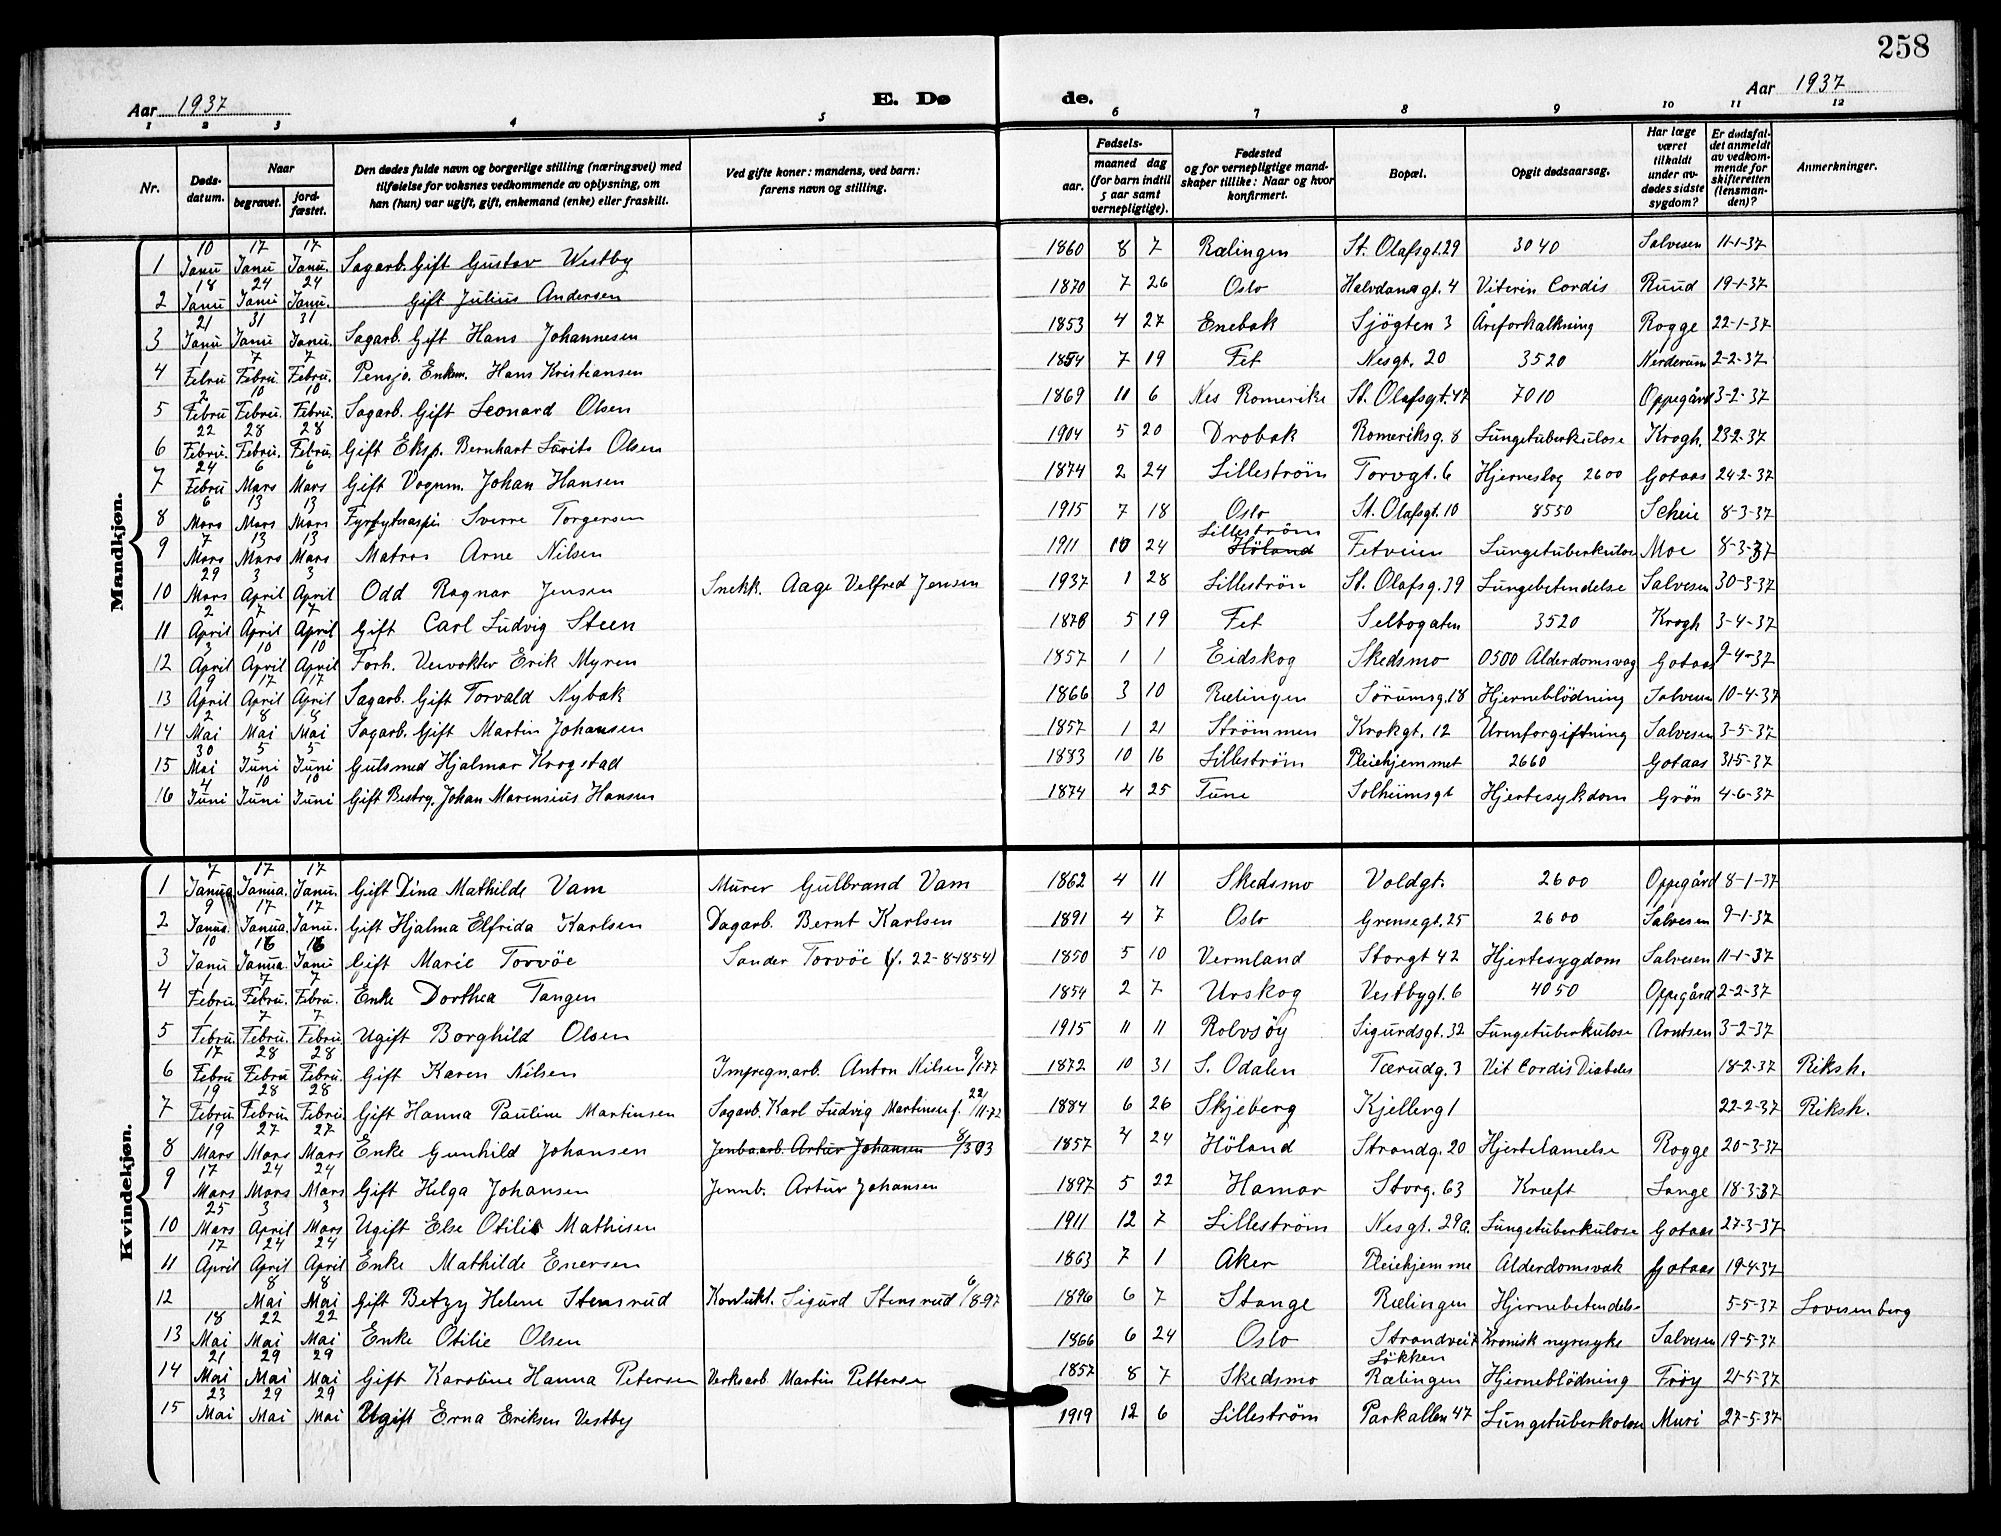 258
Aar 1937
E. Dø
de.
Aar 1937
1 2 3 4 5 6 7 8 9 10 11 12
Nr.
Døds-
datum.
Naar
begravet.
jord-
fæstet.
Den dødes fulde navn og borgerlige stilling (næringsvei) med
tilføielse for voksnes vedkommende av oplysning, om
han (hun) var ugift, gift, enkemand (enke) eller fraskilt.
Ved gifte koner: mandens, ved barn:
farens navn og stilling.
Fødsels-
aar.
maaned dag
(for barn indtil
5 aar samt
vernepligtige).
Fødested
og for vernepligtige mand-
skaper tillike: Naar og hvor
konfirmert.
Bopæl.
Opgit dødsaarsag.
Har læge
været
tilkaldt
under av-
dødes sidste
sygdom?
Er dødsfal-
det anmeldt
av vedkom-
mende for
skifteretten
(lensman-
den)?
Anmerkninger.
Mandkjøn.
1 10 Janu 17 Janu 17 Janu. Sagarb. Gift Gustav Westby 1860 8 7 Rælingen St. Olafsgt. 29 3040 Salvesen 11-1-37
2 18 Janu 24 Janu 24 Janu. Gift Julius Andersen 1870 7 26 Oslo Halvdansgt. 4 Viterin Cordis Ruud 19-1-37
3 21 Janu 31 Janu 31 Janu. Sagarb. Gift Hans Johannesen 1853 4 27 Enebak Sjögten 3 Åreforkalkning Rogge 22-1-37
4 1 Febru 7 Febru. 7 Febru. Pensjo. Enkem. Hans Kristiansen 1854 7 19 Fet Nesgt. 20 3520 Nerderum 2-2-37
5 2 Febru 10 Febru. 10 Febru. Sagarb. Gift Leonard Olsen 1869 11 6 Nes Romerike St. Olafsgt. 47 7010 Oppegård 3-2-37
6 22 Febru. 28 Febru. 28 Febru. Gift Eksp. Bernhart Lorits Olsen 1904 5 20 Drobak Romeriksg. 8 Lungetuberkulose Krogh. 23-2-37
7 24 Febru 6 Mars 6 Mars Gift Vognm. Johan Hansen 1874 2 24 Lilleström Torvgt. 6 Hjerneslag 2600 Gotaas 24-2-37
8 6 Mars 13 Mars 13 Mars Sverre Torgersen 1915 7 18 Oslo St. Olafsgt. 10 8550 Scheie 8-3-37
9 7 Mars 13 Mars 13 Mars Matros Arne Nilsen 1911 10 24 Lilleström Höland Fetveien Lungetuberkulose Moe 8-3-37
10 29 Mars 3 April 3 April Odd Ragnar Jensen Snekk. Aage Velfred Jensen 1937 1 28 Lilleströn St. Olafsg. 39 Lungebetendelse Salvesen 30-3-37
11 2 April 7 April 7 April Gift Carl Ludvig Steen 1878 5 19 Fet Selbogaten 3520 Krogh 3-4-37
12 3 April 10 April 10 April Forh. Vevokter Erik Myren 1857 1 1 Eidskog Skedsmo 0500 Alderdomsvag Gotaas 9-4-37
13 9 April 17 April 17 April Sagarb. Gift Torvald Nybak 1866 3 10 Rælingen Sörumsg. 18 Hjerneblödning Salvesen 10-4-37
14 2 Mai 8 Mai 8 Mai Sagarb. Gift Martin Johansen 1857 1 21 Strömmen Krokgt. 12 Urenforgiftning Salvesen 3-5-37
15 30 Mai 5 Juni 5 Juni Gulsmed Hjalmar Krogstad 1883 10 16 Lilleström Pleiehjemmet 2660 Gotaas 31-5-37
16 4 Juni 10 Juni 10 Juni Gift Bestry. Johan Marensius Hansen 1874 4 25 Tune Solheimsgt Hjertesykdom Grön 4-6-37
Kvindekjøn.
1 7 Janua 17 Janua. 17 Janu. Gift Dina Mathilde Vam Murer Gulbrand Vam 1862 4 11 Skedsmo Voldgt. 2600 Oppegård 8-1-37
2 9 Janua. 17 Janua. 17 Janu. Gift Hjalma Elfrida Karlsen Dagarb. Bernt Karlsen 1891 4 7 Oslo Grensegt. 25 2600 Salvesen 9-1-37
3 10 Janu 16 Janua. 16 Janu Gift Marie Torvöe Sander Torvöe (f. 22-8-1854) 1850 5 10 Vermland Storgt 42 Hjertesygdom Salvesen 11-1-37
4 1 Febru 7 Febru. 7 Febru. Enke Dorthea Tangen 1854 2 7 Urskog Vestbygt. 6 4050 Oppegård 2-2-37
5 1 Febru. 7 Febru. 7 Febru Ugift Borghild Olsen 1915 11 11 Rolvsöy Sigurdsgt. 32 Lungetuberkulose Arntsen 3-2-37
6 17 Febru 28 Febru 28 Febru. Gift Karen Nilsen Impregn.arb. Anton Nilsen 9/1-77 1872 10 31 S. Odalen Tærudg. 3 Vit Cordis Diabetes 18-2-37 Riksh.
7 19 Febru 28 Febru 28 Febru. Gift Hanna Pauline Martinsen Sagarb. Karl Ludvig Martinsen f. 22/11-72 1884 6 26 Skjeberg Kjellerg 1 22-2-37 Riksh.
8 19 Mars 27 Mars 27 Mars Enke Gunhild Johansen Jernba.arb. Artur Johansen 8/3 93 1857 4 24 Höland Strandg. 20 Hjertelamelse Rogge 20-3-37
9 17 Mars 24 Mars 24 Mars Gift Helga Johansen Jernb. Artur Johansen 1897 5 22 Hamar Storg. 63 Kræft Lange 18-3-37
10 25 Mars 3 April 3 Mars Ugift Else Otilie Mathisen 1911 12 7 Lilleström Nesgt. 29a. Lungetuberkulose Gotaas 27-3-37
11 17 April 24 April 24 April Enke Mathilde Enersen 1863 7 1 Aker Pleiehjemme Alderdomsvak Gotaas 19-4-37
12 8 Mai 8 Mai Gift Betzy Helene Stensrud Konlukt. Sigurd Stensrud 6/8-97 1896 6 7 Stange Rælingen Hjernebetendels- 5-5-37 Lovisenberg
13 18 Mai 22 Mai 22 Mai Enke Otilie Olsen 1866 6 24 Oslo Strandvei 7 Kronisk nyresyke Salvesen 19-5-37
14 21 Mai 29 Mai 29 Mai Gift Karoline Hanna Petersen Verksarb Martin Pettersen 1857 8 7 Skedsmo Lökken Rælingen Hjerneblödning Fröy 21-5-37
15 23 Mai 29 Mai 29 Mai Ugift Erna Eriksen Vestby 1919 12 6 Lilleström Parkallen 47 Lungetuberkolose Muri 27-5-37